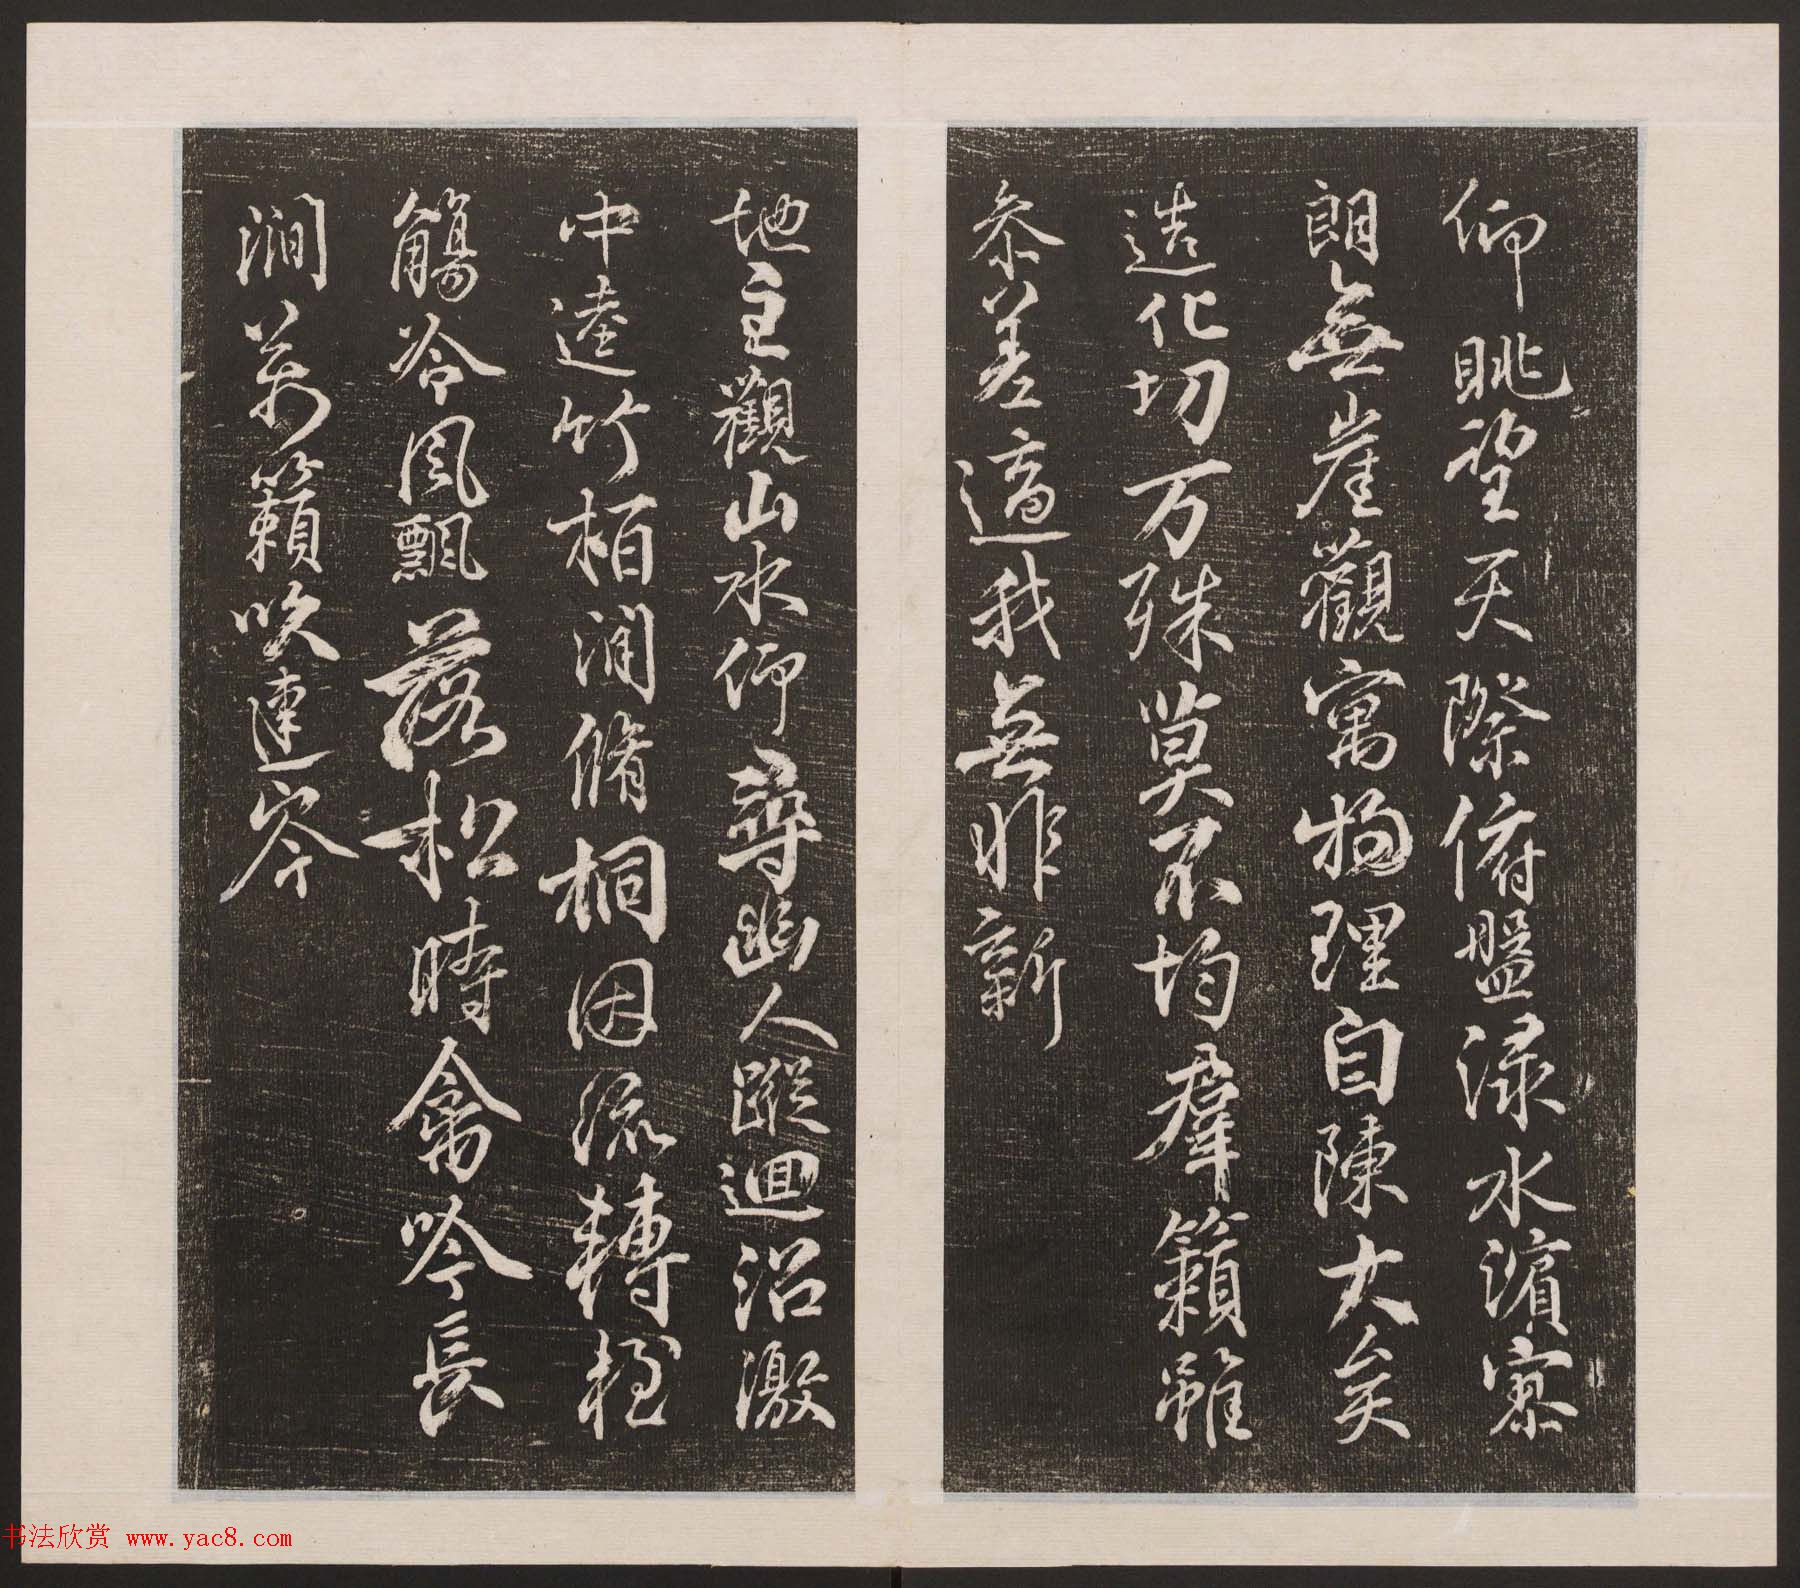 仰眺望天際俯盤渌水濵寥
朗無崖觀寓物理自陳大矣
造化功万殊莫不均羣籟雖
叅差適我無非新
地主觀山水仰尋幽人蹤迴沼激
中逵竹栢間脩桐因流轉輕
觴冷風飄落松時禽吟長
澗萬籟吹連岑
书法欣赏 www.yac8.com